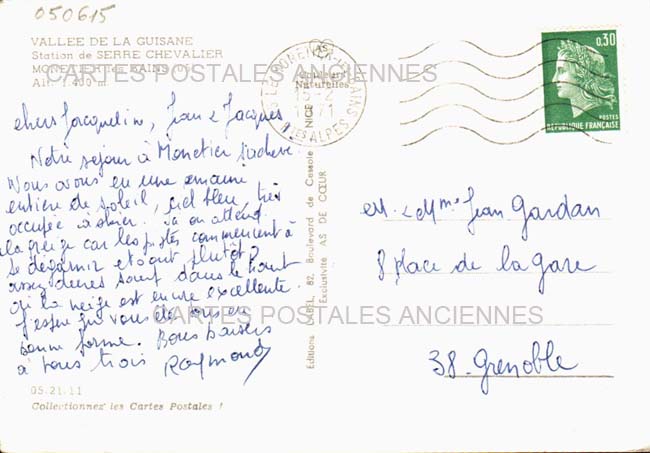 050615
VALLEE DE LA GUISANE
Station de SERRE CHEVALIER
MONETIER les BAINS (05)
Alt. 1.400 m
CARTES POSTALES ANCIENNES
chers Jacqueline, Jean & Jacques
Notre séjour à Monetier s'achève
Nous avons eu une semaine
entière de soleil, ciel bleu, très
occupée à skier. On attend
la neige car les pistes commencent à
se dégarnir et sont plutôt
assez dures sauf dans le haut
où la neige est encore excellente
J'espère que vous êtes en
bonne forme. Bons baisers
à tous trois Raymond
05.21.11
Collectionnez les Cartes Postales !
Couleurs
Naturelles
NICE
Editions LABEL, 82, Boulevard de Cessole
Exclusivité AS DE CŒUR
HTES ALPES
0,30
POSTES
REPUBLIQUE FRANÇAISE
M. & Mme Jean Gardan
8 place de la gare
CARTES POSTALES ANCIENNES
38. Grenoble